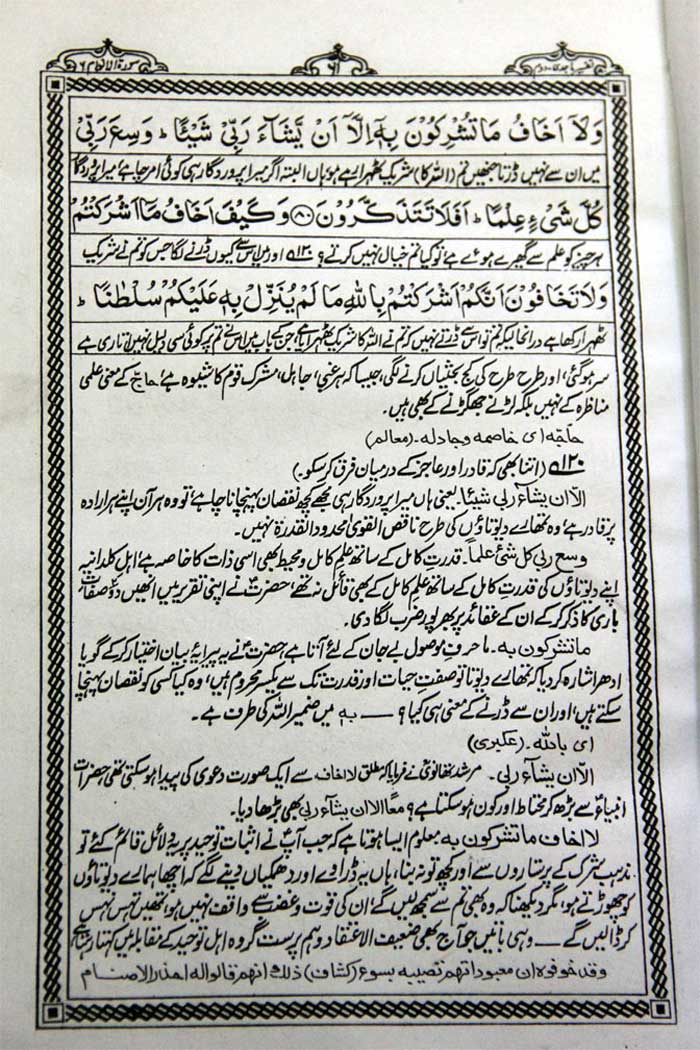 تفسیر ماجدی - دوم ۶۱ سورۃ الانعام ۶
وَلَآ اَخَافُ مَا تُشْرِكُوْنَ بِهٖٓ اِلَّآ اَنْ يَّشَآءَ رَبِّيْ شَيْئًا ؕ وَسِعَ رَبِّيْ
میں ان سے نہیں ڈرتا جنھیں تم (اللہ کا) شریک ٹھہرا رہے ہو ہاں البتہ اگر میرا پروردگار ہی کوئی امر چاہے، میرا پروردگار
كُلَّ شَيْءٍ عِلْمًا ؕ اَفَلَا تَتَذَكَّرُوْنَ ﴿۸۰﴾ وَكَيْفَ اَخَافُ مَآ اَشْرَكْتُمْ
ہر چیز کو علم سے گھیرے ہوئے ہے، تو کیا تم خیال نہیں کرتے؟ ۵۱۲۰ اور میں اس سے کیوں ڈرنے لگا جس کو تم نے شریک
وَلَا تَخَافُوْنَ اَنَّكُمْ اَشْرَكْتُمْ بِاللّٰهِ مَا لَمْ يُنَزِّلْ بِهٖ عَلَيْكُمْ سُلْطٰنًا ؕ
ٹھہرا رکھا ہے درانحالیکہ تم تو اس سے ڈرتے نہیں کہ تم نے اللہ کا شریک ٹھہرایا ہے، جن کے باب میں اس نے تم پر کوئی سی دلیل نہیں اتاری ہے
سر ہو گئی، اور طرح طرح کی کج بحثیاں کرنے لگی، جیسا کہ ہر غبی، جاہل، مشرک قوم کا شیوہ ہے، حاجّ کے معنی علمی
مناظرہ کے نہیں بلکہ لڑنے جھگڑنے کے بھی ہیں۔
حاجّہ ای خاصمہ وجادلہ۔ (معالم)
۵۱۲۰ (اتنا بھی کہ قادر اور عاجز کے درمیان فرق کر سکو۔)
الّا ان یشآء ربی شیئا۔ یعنی ہاں میرا پروردگار ہی مجھے کچھ نقصان پہنچانا چاہے، تو وہ ہر آن اپنے ہر ارادہ
پر قادر ہے، وہ تمھارے دیوتاؤں کی طرح ناقص القویٰ، محدود القدرۃ نہیں۔
وسع ربی کل شئ علماً۔ قدرتِ کامل کے ساتھ علم کامل و محیط بھی اسی ذات کا خاصہ ہے، اہل کلدانیہ
اپنے دیوتاؤں کی قدرتِ کامل کے ساتھ علم کامل کے بھی قائل نہ تھے، حضرتؑ نے اپنی تقریر میں انھیں دو صفات
باری کا ذکر کر کے ان کے عقائد پر بھرپور ضرب لگا دی۔
ما تشرکون بہ۔ ما حرفِ موصول بے جان کے لئے آتا ہے، حضرتؑ نے یہ پیرایۂ بیان اختیار کر کے گویا
ادھر اشارہ کر دیا کہ تمھارے دیوتا تو صفت حیات اور قدرت تک سے یکسر محروم ہیں، وہ کیا کسی کو نقصان پہنچا
سکتے ہیں، اور ان سے ڈرنے کے معنی ہی کیا؟ —— بہٖ میں ضمیر اللہ کی طرف ہے۔
ای باللہ۔ (عکبری)
الّا ان یشآء ربی۔ مرشد تھانویؒ نے فرمایا کہ مطلق لا اخاف سے ایک صورت دعویٰ کی پیدا ہو سکتی تھی، حضرات
انبیاءؑ سے بڑھ کر محتاط اور کون ہو سکتا ہے؟ معاً الا ان یشاء ربی بھی بڑھا دیا۔
لا اخاف ما تشرکون بہ معلوم ایسا ہوتا ہے کہ جب آپؑ نے اثبات توحید پر یہ دلائل قائم کئے تو
مذہب شرک کے پرستاروں سے اور کچھ تو نہ بنا، ہاں یہ ڈراوے اور دھمکیاں دینے لگے کہ اچھا ہمارے دیوتاؤں
کو چھوڑتے ہو، مگر دیکھنا کہ وہ بھی تم سے سمجھ لیں گے، ان کی قوت و غضب سے واقف نہیں ہو، تمھیں تہس نہس
کر ڈالیں گے —— وہی باتیں جو آج بھی ضعیف الاعتقاد وہم پرست گروہ اہل توحید کے مقابلہ میں کہتا رہتا ہے
وقد خوفوہ ان معبوداتھم تصیبہ بسوء (کشاف) ذلک انھم قالوا لہ احذر الاصنام